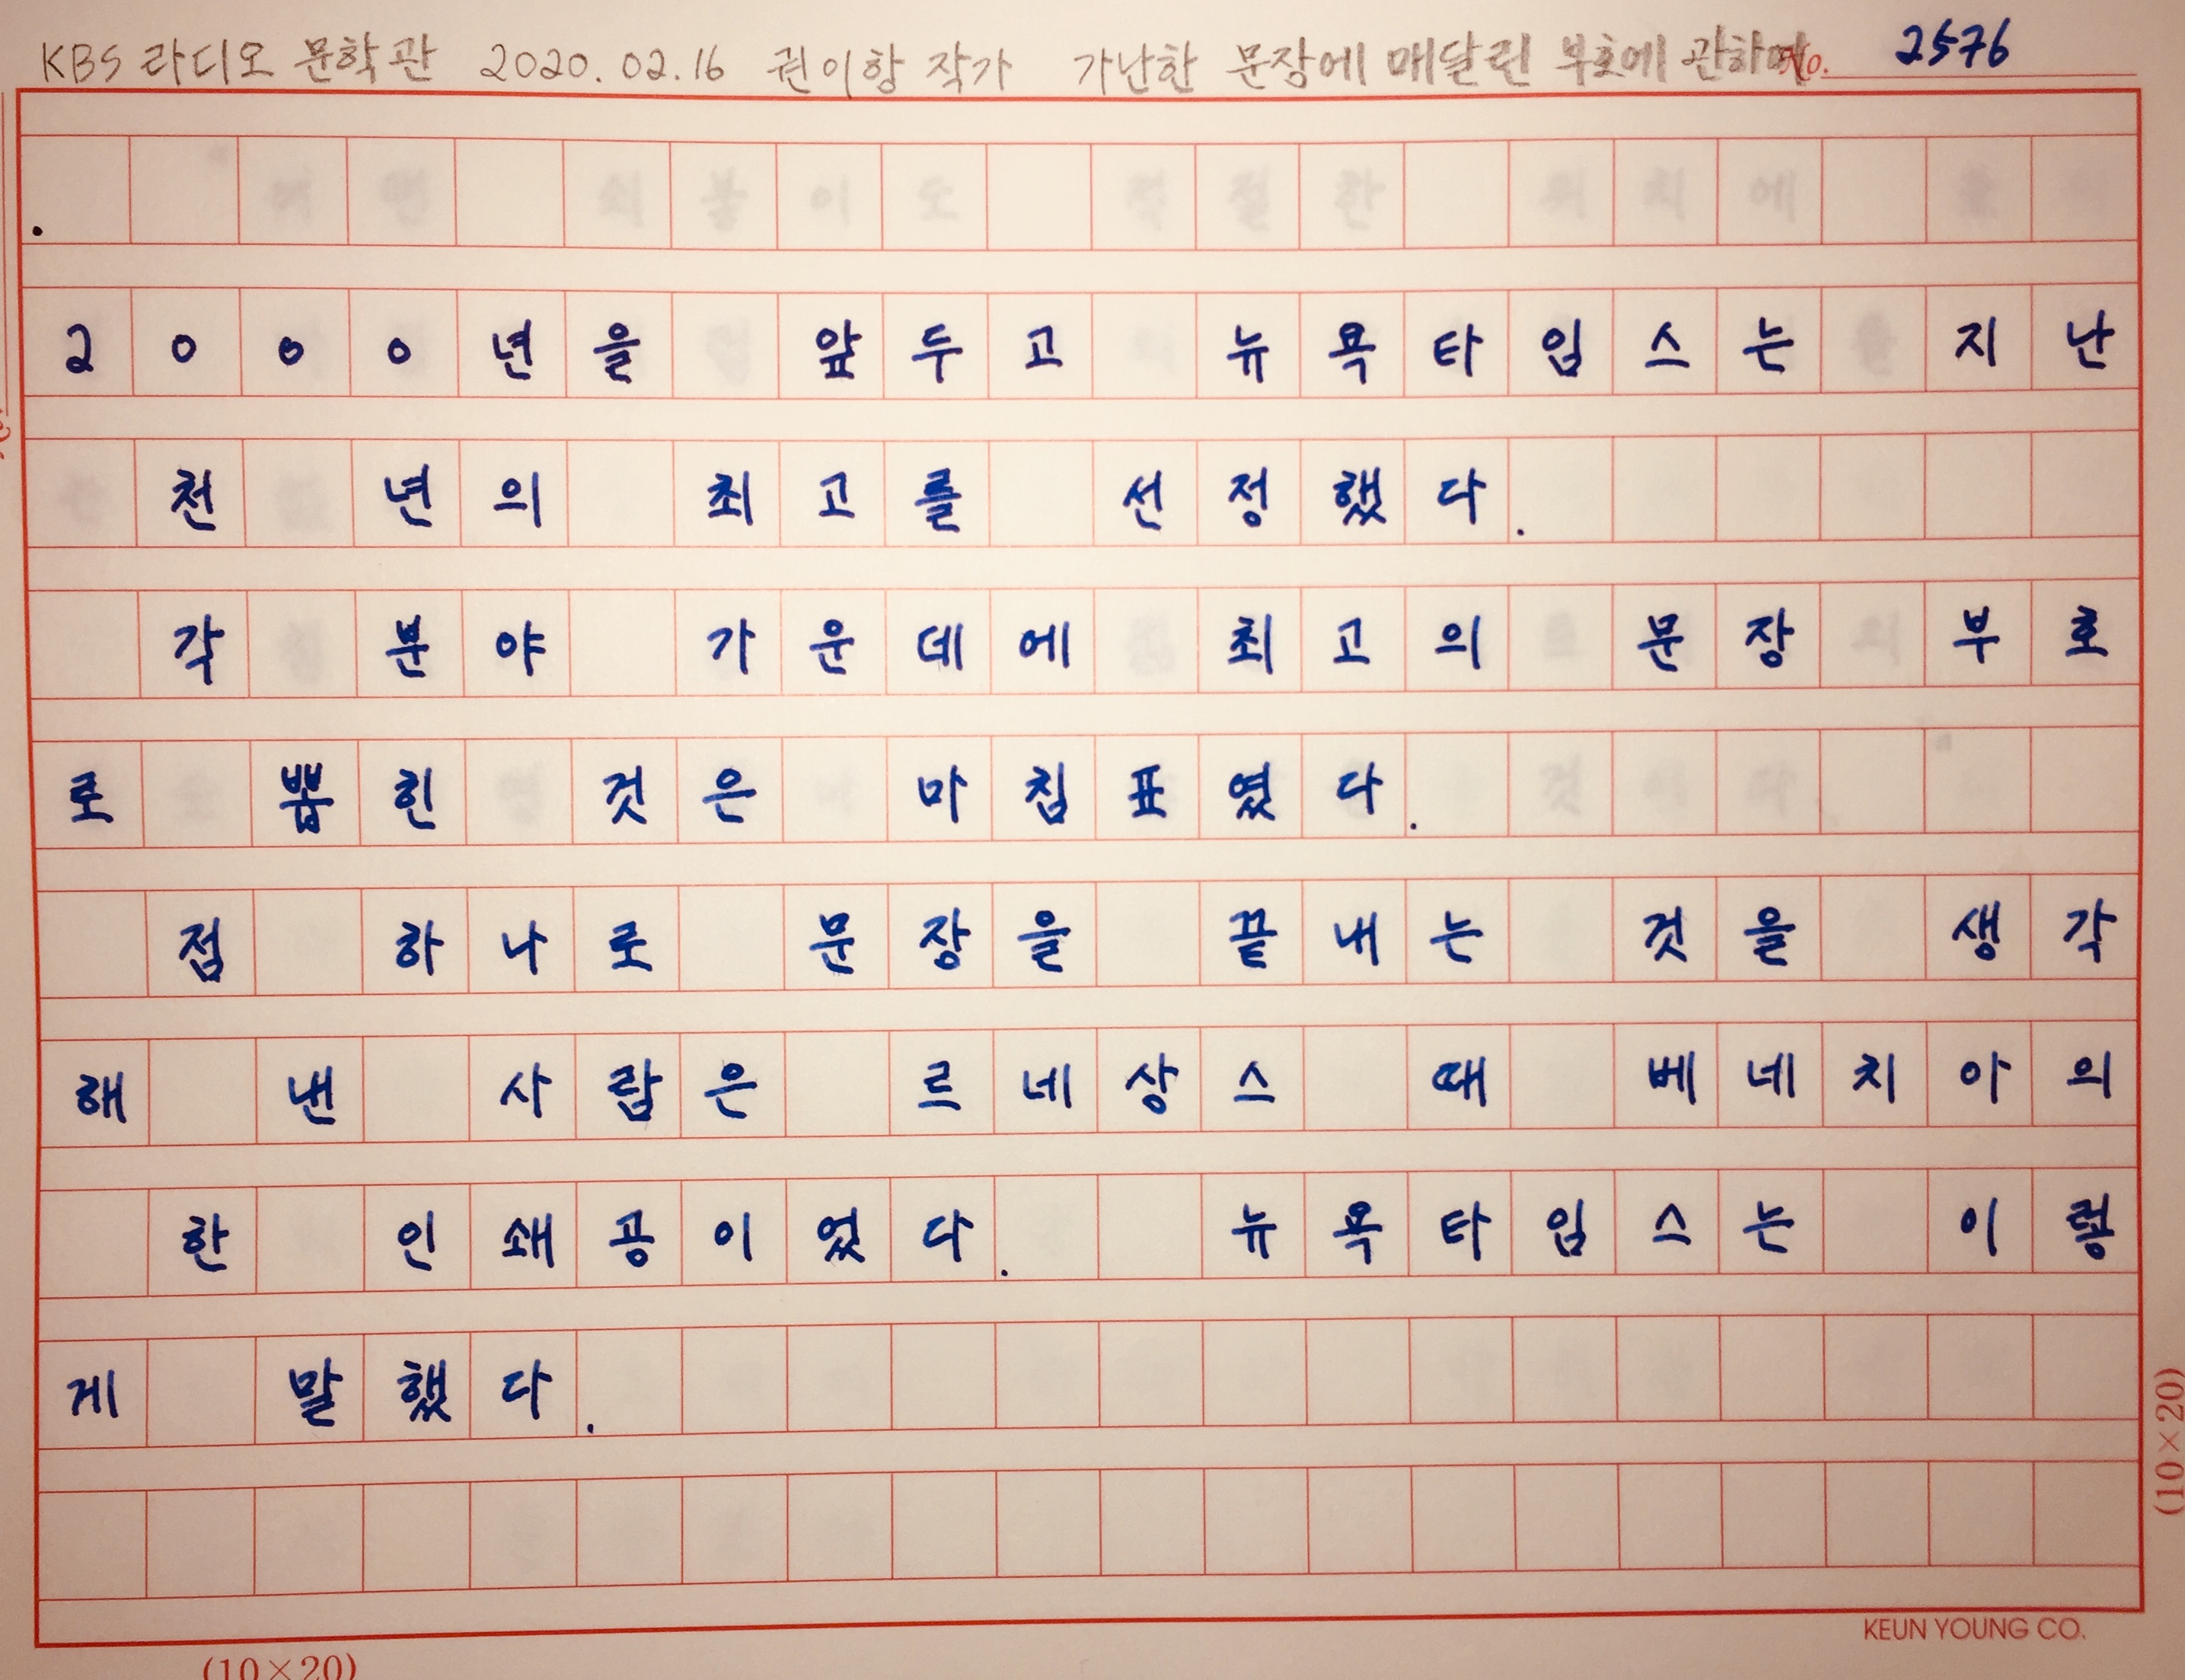 KBS 라디오 문학관 2020.02.16 권이항 작가 가난한 문장에 매달린 부호에 관하여 No. 2576
.
2000년을 앞두고 뉴욕타임스는 지난
천 년의 최고를 선정했다.
각 분야 가운데에 최고의 문장 부호
로 뽑힌 것은 마침표였다.
점 하나로 문장을 끝내는 것을 생각
해 낸 사람은 르네상스 때 베네치아의
한 인쇄공이었다. 뉴욕타임스는 이렇
게 말했다.
(10×20)
KEUN YOUNG CO.
(10×20)